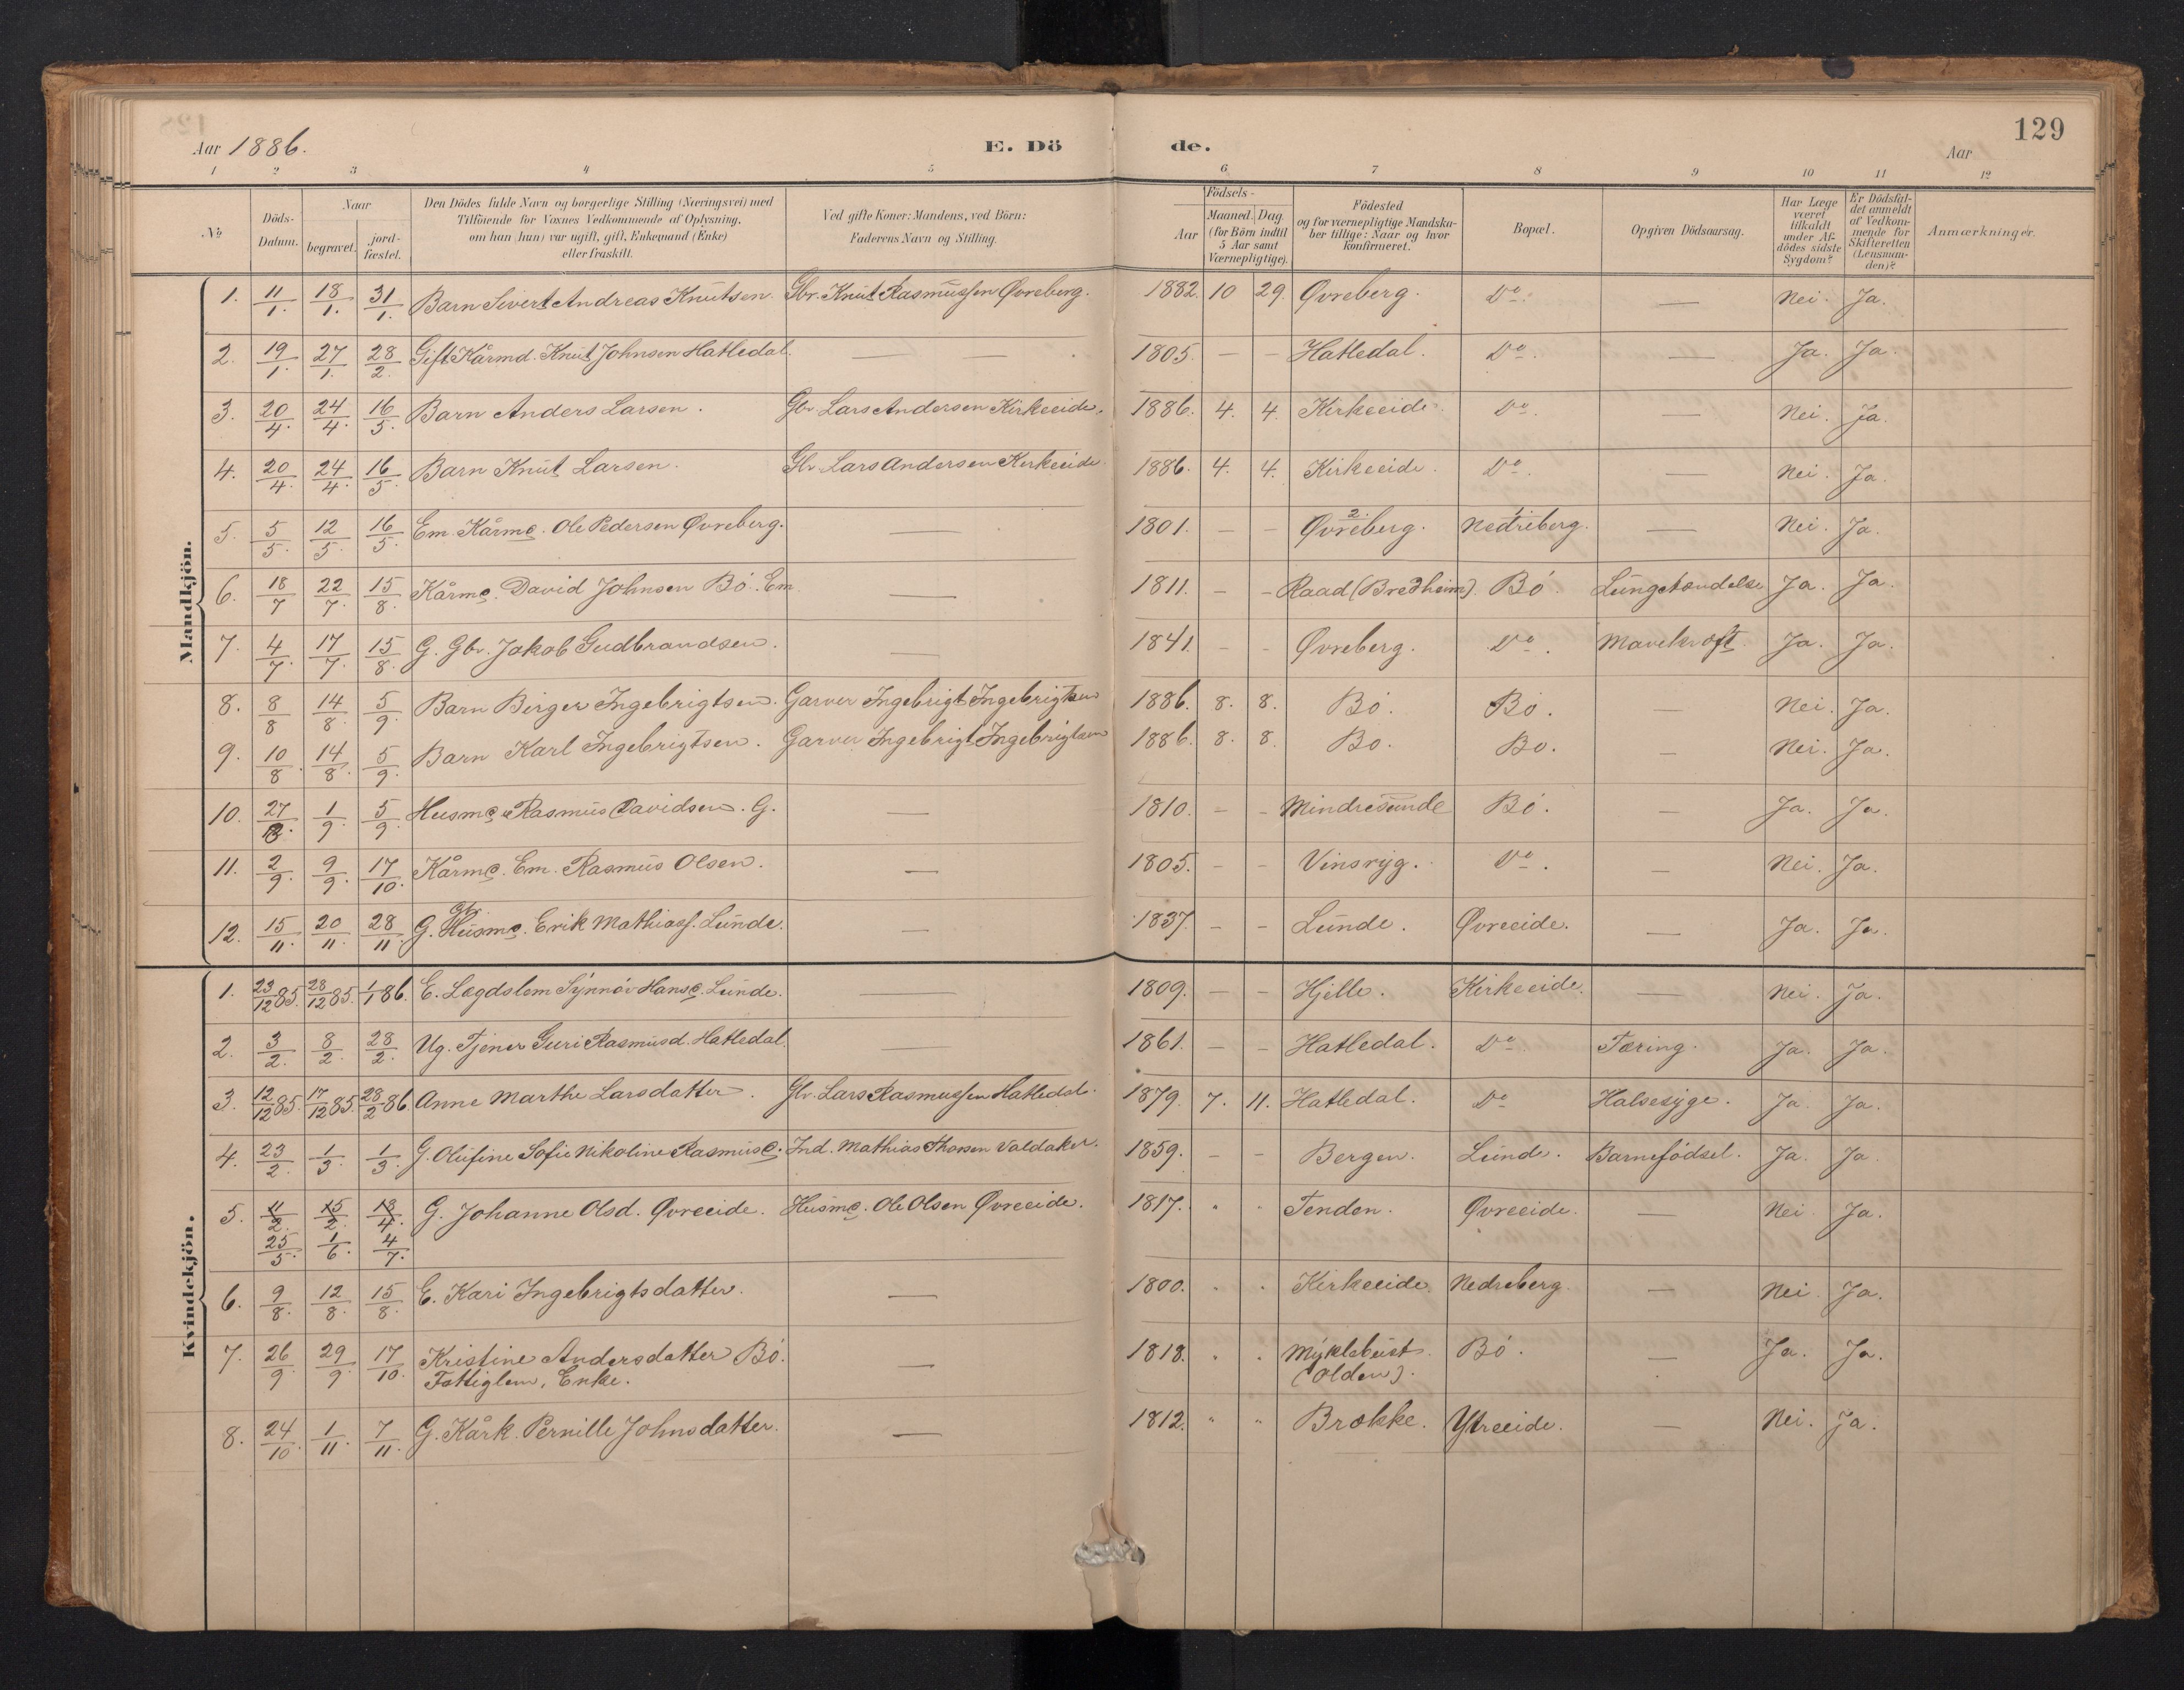 129
Aar 1886. E. Dö de. Aar
1 2 3 4 5 6 7 8 9 10 11 12
No Döds-Datum. Naar begravet. jord-fæstet. Den Dödes fulde Navn og borgerlige Stilling (Næringsvei) med Tilföiende for Voxnes Vedkommende af Oplysning, om han (hun) var ugift, gift, Enkemand (Enke) eller fraskilt. Ved gifte Koner: Mandens, ved Börn: Faderens Navn og Stilling. Födsels- Aar Maaned. Dag. (for Börn indtil 5 Aar samt Værnepligtige). Födested og for værnepligtige Mandskaber tillige: Naar og hvor konfirmeret. Bopæl. Opgiven Dödsaarsag. Har Læge været tilkaldt under Afdödes sidste Sygdom? Er Dödsfaldet anmeldt af Vedkommende for Skifteretten (Lensmanden)? Anmærkninger.
Mandkjön.
1. 11/1. 18/1. 31/1. Barn Sivert Andreas Knutsen. Gbr. Knut Rasmussen Øvreberg. 1882. 10 29. Øvreberg. Do. — Nei. Ja.
2. 19/1. 27/1. 28/2. Gift Kårmd. Knut Johnsen Hatledal. — 1805. — — Hatledal. Do. — Ja. Ja.
3. 20/4. 24/4. 16/5. Barn Anders Larsen. Gbr. Lars Andersen Kirkeeide. 1886. 4. 4. Kirkeeide. Do. — Nei. Ja.
4. 20/4. 24/4. 16/5. Barn Knut Larsen. Gbr. Lars Andersen Kirkeeide. 1886. 4. 4. Kirkeeide. Do. — Nei. Ja.
5. 5/5. 12/5. 16/5. Em. Kårmd. Ole Pedersen Øvreberg. — 1801. — — 2. Øvreberg. 1. Nedreberg. — Nei. Ja.
6. 18/7 22/7. 15/8. Kårmd. David Johnsen Bö. Em. — 1811. — — Raad (Bredheim). Bö Lungebændelse Ja. Ja.
7. 4/7. 17/7. 15/8. G. Gbr. Jakob Gudbrandsen. — 1841. — — Øvreberg. Do. Mavekræft. Ja. Ja.
8. 8/8 14/8. 5/9. Barn Birger Ingebrigtsen. Garver Ingebrigt Ingebrigtsen 1886. 8. 8. Bö. Bö. — Nei. Ja.
9. 10/8. 14/8. 5/9. Barn Karl Ingebrigtsen. Garver Ingebrigt Ingebrigtsen 1886. 8. 8. Bö. Bö. — Nei. Ja.
10. 27/8. 1/9. 5/9. Husmd. Rasmus Davidsen. G. — 1810. — — Mindresunde Bö. — Ja. Ja.
11. 2/9. 9/9. 17/10. Kårmd. Em. Rasmus Olsen. — 1805. — — Vinsryg. Do. — Nei. Ja.
12. 15/11. 20/11. 28/11. G. Gbr. Husmd. Erik Mathiass. Lunde. — 1837. — — Lunde. Øvreeide. — Ja. Ja.
Kvindekjön.
1. 23/12 85. 28/12 85. 1/1 86. E. Lægdslem Synnöv Hansd. Lunde. — 1809. — — Hjelle. Kirkeeide. — Nei. Ja.
2. 3/2. 8/2. 28/2. Ug. Tjener Guri Rasmusd. Hatledal. — 1861. — — Hatledal. Do. Tæring. Ja. Ja.
3. 12/12 85. 17/12 85. 28/2 86. Anne Marthe Larsdatter. Gbr. Lars Rasmussen Hatledal. 1879. 7. 11. Hatledal. Do Halsesyge. Ja. Ja.
4. 23/2. 1/3. 1/3. G. Olufine Sofie Nikoline Rasmusd. Ind. Mathias Thorsen Valdaker. 1859. — — Bergen. Lunde. Barnefödsel. Ja. Ja.
5. 11/2. 15/2. 18/4. G. Johanne Olsd. Øvreeide. Husmd. Ole Olsen Øvreeide. 1817. " " Tenden. Øvreeide. — Nei. Ja.
25/5. 1/6. 4/7.
6. 9/8. 12/8. 15/8. E. Kari Ingebrigtsdatter. — 1800. " " Kirkeeide. Nedreberg. — Nei. Ja.
7. 26/9 29/9. 17/10. Kristine Andersdatter Bö. — 1818. " " Myklebust Bö. — Ja. Ja.
Fattiglem, Enke. (Olden).
8. 24/10 1/11. 7/11. G. Kårk. Pernille Johnsdatter. — 1812. " " Brække. Ytreeide. — Nei. Ja.